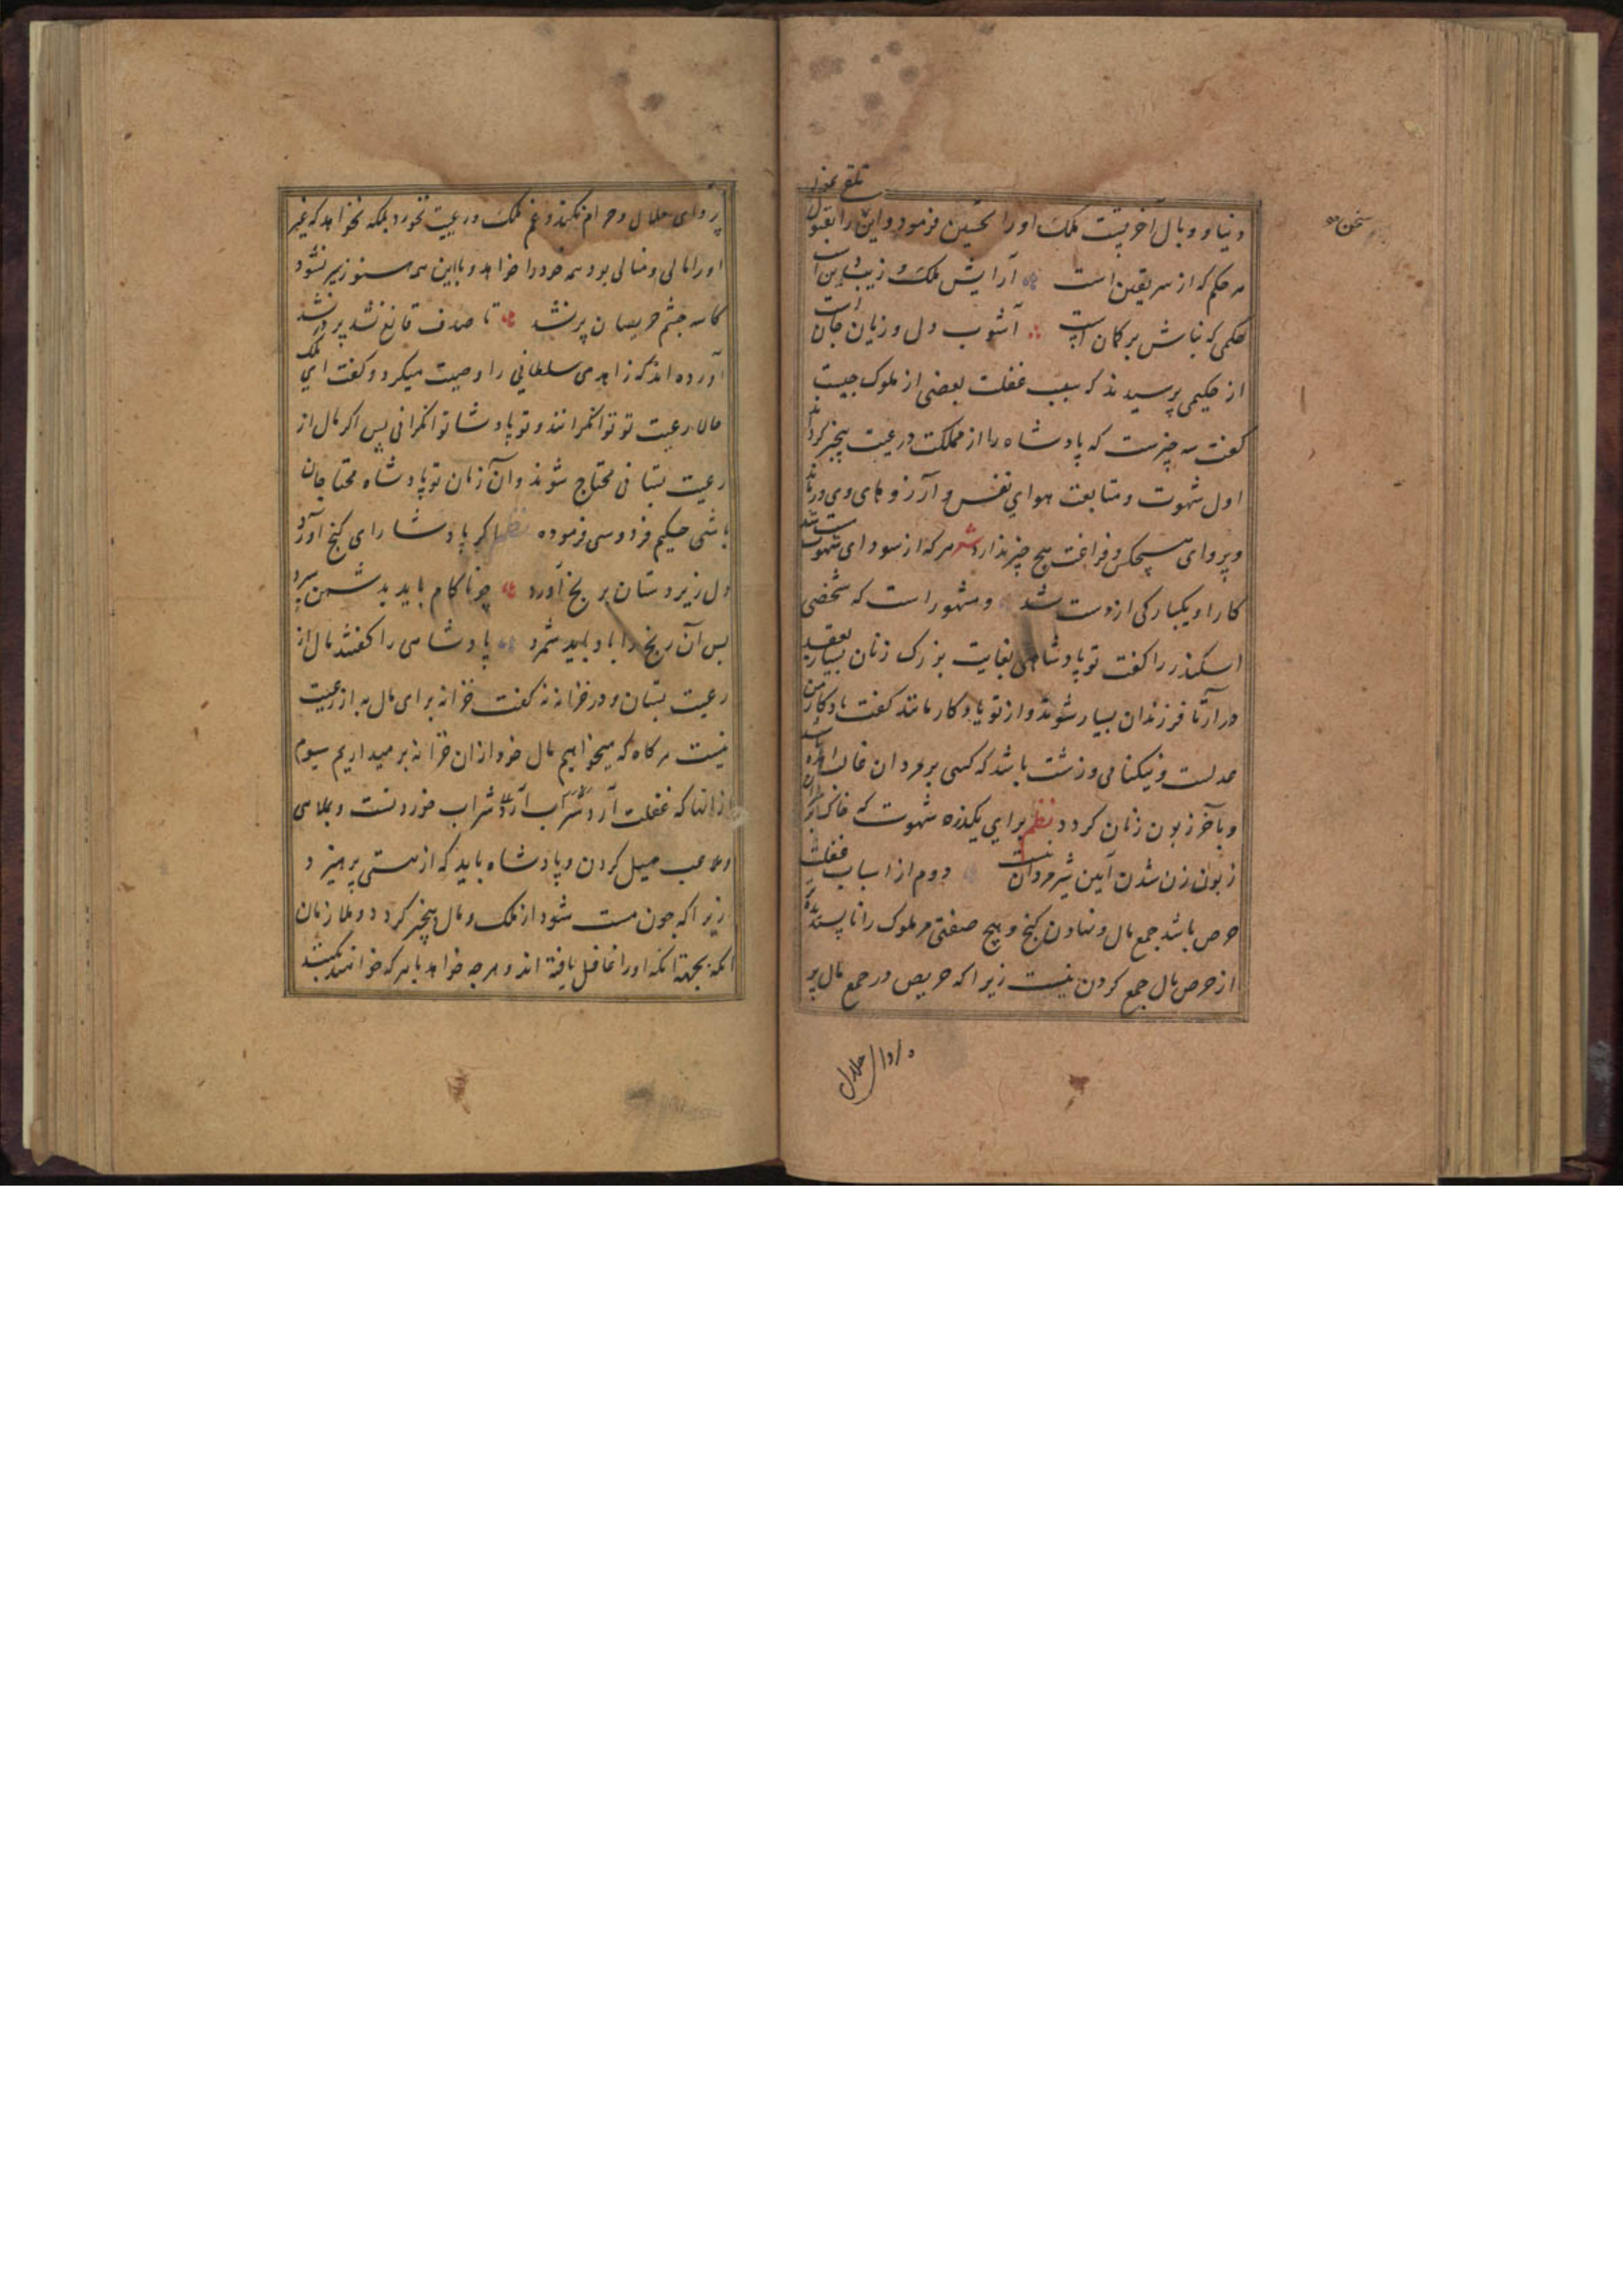 سخن
تلقی نمود
دنیا و وبال آخرتست ملک او را تحسین فرمود و این را بقبول
هر حکم که از سر یقین است آرایش ملک و زیب دین است
حکمی که بناش بر کمان است آشوب دل و زیان جان است
از حکیمی پرسیدند که سبب غفلت بعضی از ملوک چیست
کفت سه چیزست که پادشاه را از مملکت و رعیت بیخبر کرداند
اول شهوت و متابعت هوای نفس و آرزوهای وی در ماند
و پروای هیچکس و فراغت هیچ چیز ندارد شعر هر که از سودای شهوت مست شد
کار او یکبارکی از دست شد و مشهور است که شخصی
اسکندر را کفت تو پادشاهی بغایت بزرک زنان بسیار بعقد
در آر تا فرزندان بسیار شوند و از تو یادکار مانند کفت یادکار من
عدلست و نیکنامی و زشت باشد که کسی بر مردان غالب آمده
و بآخر زبون زنان کردد نظم برای یکذره شهوت که خاک بر سر آن
زبون زن شدن آیین شیرمردان نیست دوم از اسباب غفلت
حرص باشد جمع مال و نهادن کنج و هیچ صفتی مر ملوک را ناپسندیده تر
از حرص مال جمع کردن نیست زیرا که حریص در جمع مال پر
پروای حلال
پروای حلال و حرام نکند و غم ملک و رعیت نخورد بلکه نخواهد که غیر
او را مالی و منالی بود همه خود را خواهد و بااین همه هنوز سیر نشود
کاسه چشم حریصان پر نشد تا صدف قانع نشد پر در نشد
آورده اند که زاهدی سلطانی را وصیت میکرد و کفت ای ملک
حالا رعیت تو توانکرانند و تو پادشا توانکرانی پس اکر مال از
رعیت بستانی محتاج شوند و آن زمان تو پادشاه محتاجان
باشی حکیم فردوسی فرموده نظم اکر پادشا رای کنج آورد
دل زیردستان برنج آورد چو ناکام باید بدشمن سپرد
بس آن رنج را باد باید شمرد پادشاهی را کفتند مال از
رعیت بستان و در خزانه نه کفت خزانه برای مال به از رعیت
نیست هر کاه که میخواهیم مال خود ازان خزانه بر میداریم سیوم
از انها که غفلت آرد شراب آرد شراب خوردنست و بملاهی
و ملاعب میل کردن و پادشاه باید که از مستی پرهیزد
زیرا که چون مست شود از ملک و مال بیخبر کردد و ملازمان
انکه بجهة انکه او را غافل یافته اند و هرچه خواهد با هر که خواهند بکنند